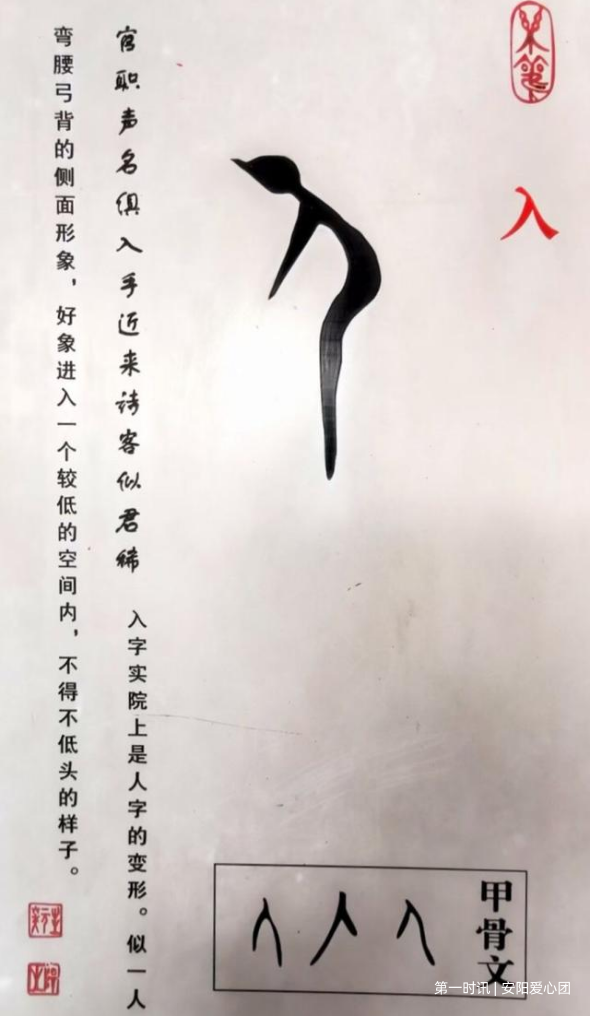 入
官职声名俱入手近来诗客似君稀
入字实院上是人字的变形。似一人
弯腰弓背的侧面形象，好象进入一个较低的空间内，不得不低头的样子。
甲骨文
第一时讯 | 安阳爱心团